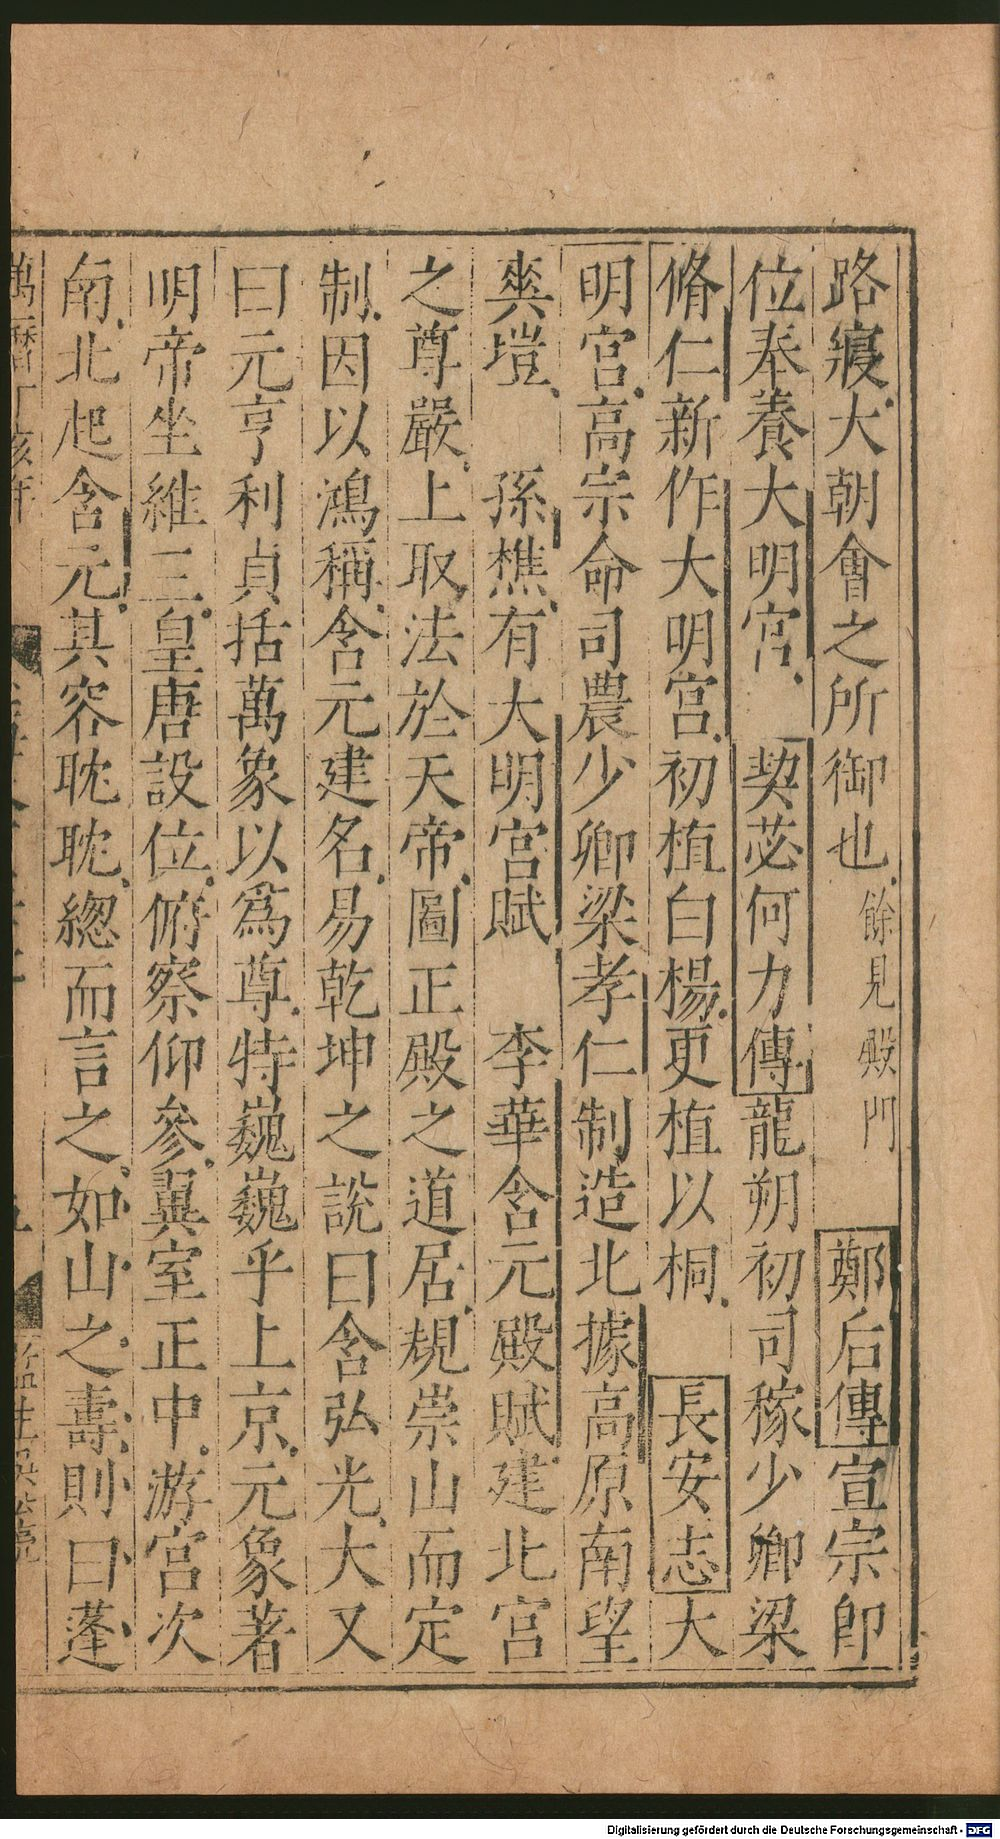 路寢大朝會之所御也餘見殿門　鄭后傳宣宗即
位奉養大明宮　契苾何力傳龍朔初司稼少卿梁
脩仁新作大明宮初植白楊更植以桐　長安志大
明宮高宗命司農少卿梁孝仁制造北據高原南望
爽塏　孫樵有大明宮賦　李華含元殿賦建北宮
之尊嚴上取法於天帝圖正殿之道居規崇山而定
制因以鴻稱含元建名易乾坤之說曰含弘光大又
曰元亨利貞括萬象以爲尊特巍巍乎上京元象著
明帝坐維三皇唐設位俯察仰參翼室正中游宮次
南北起含元其容耽耽緫而言之如山之壽則曰蓬
萬曆丁亥年
Digitalisierung gefördert durch die Deutsche Forschungsgemeinschaft - DFG